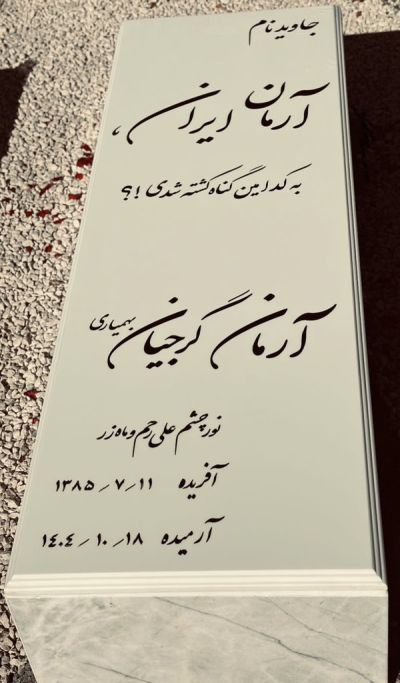 جاویدنام
آرمان ایران،
به کدامین گناه کشته شدی !؟
آرمان گرجیان بهمیاری
نورچشم علی رحم و ماه زر
آفریده ۱۳۸۵/۷/۱۱
آرمیده ۱۴۰۴/۱۰/۱۸